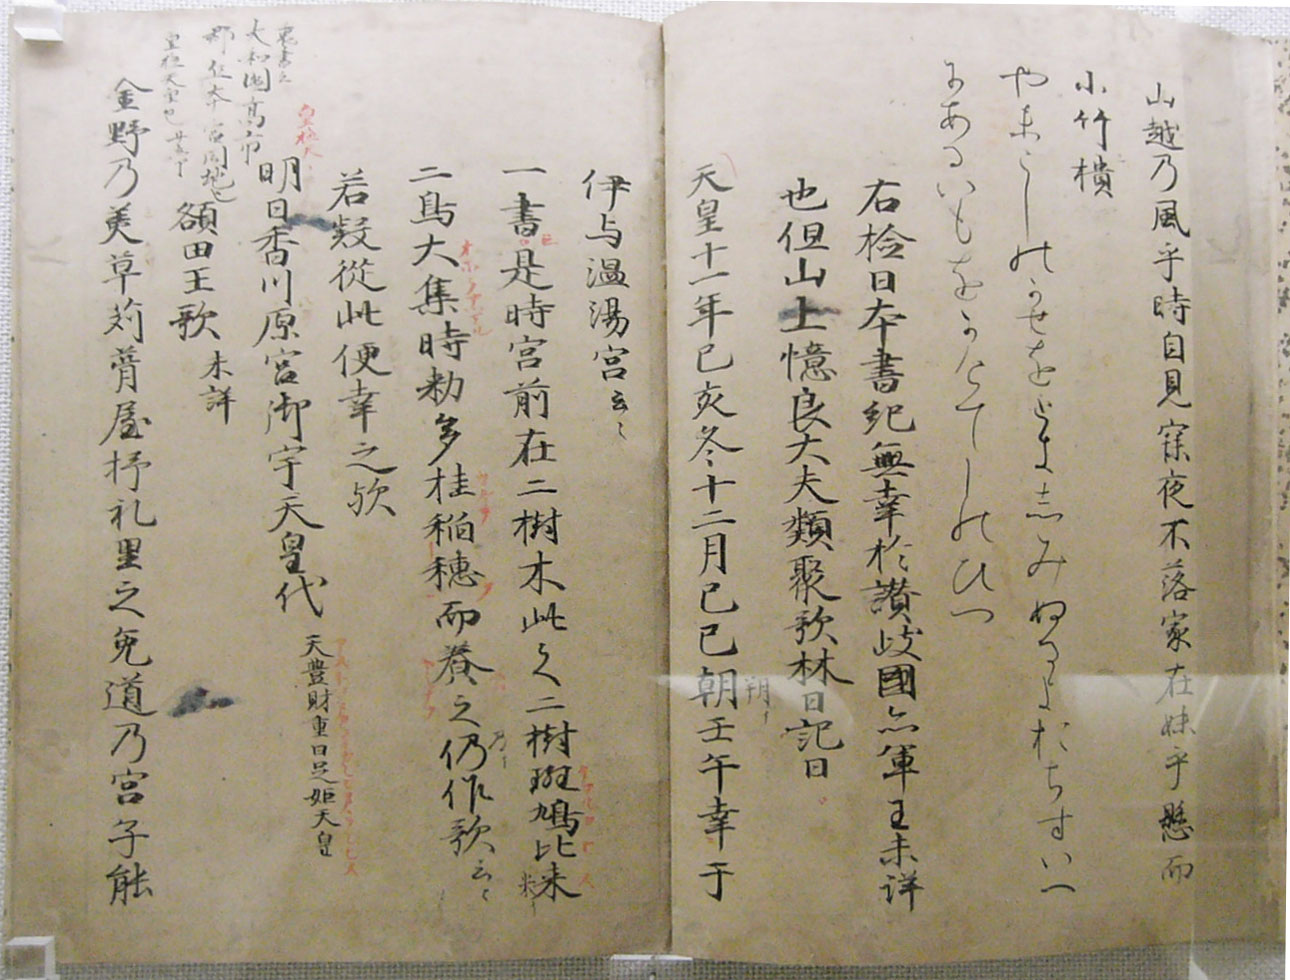 山越乃風乎時自見寐夜不落家在妹乎懸而
小竹樻
やまこしのかせをときしみぬるよおちすいへ
にあるいもをかけてしのひつ
右檢日本書紀無幸於讃岐國亦軍王未詳
也但山上憶良大夫類聚歌林曰記曰
天皇十一年己亥冬十二月己巳朝壬午幸于
朔
伊与温湯宮云〻
一書是時宮前在二樹木此之二樹斑鳩比米
二鳥大集時勅多桂稲穂而養之仍作歌云〻
乃
若疑從此便幸之歟
明日香川原宮御宇天皇代 天豊財重日足姫天皇
皇極天
大和國高市
額田王歌 未詳
金野乃美草苅葺屋杼礼里之兔道乃宮子能